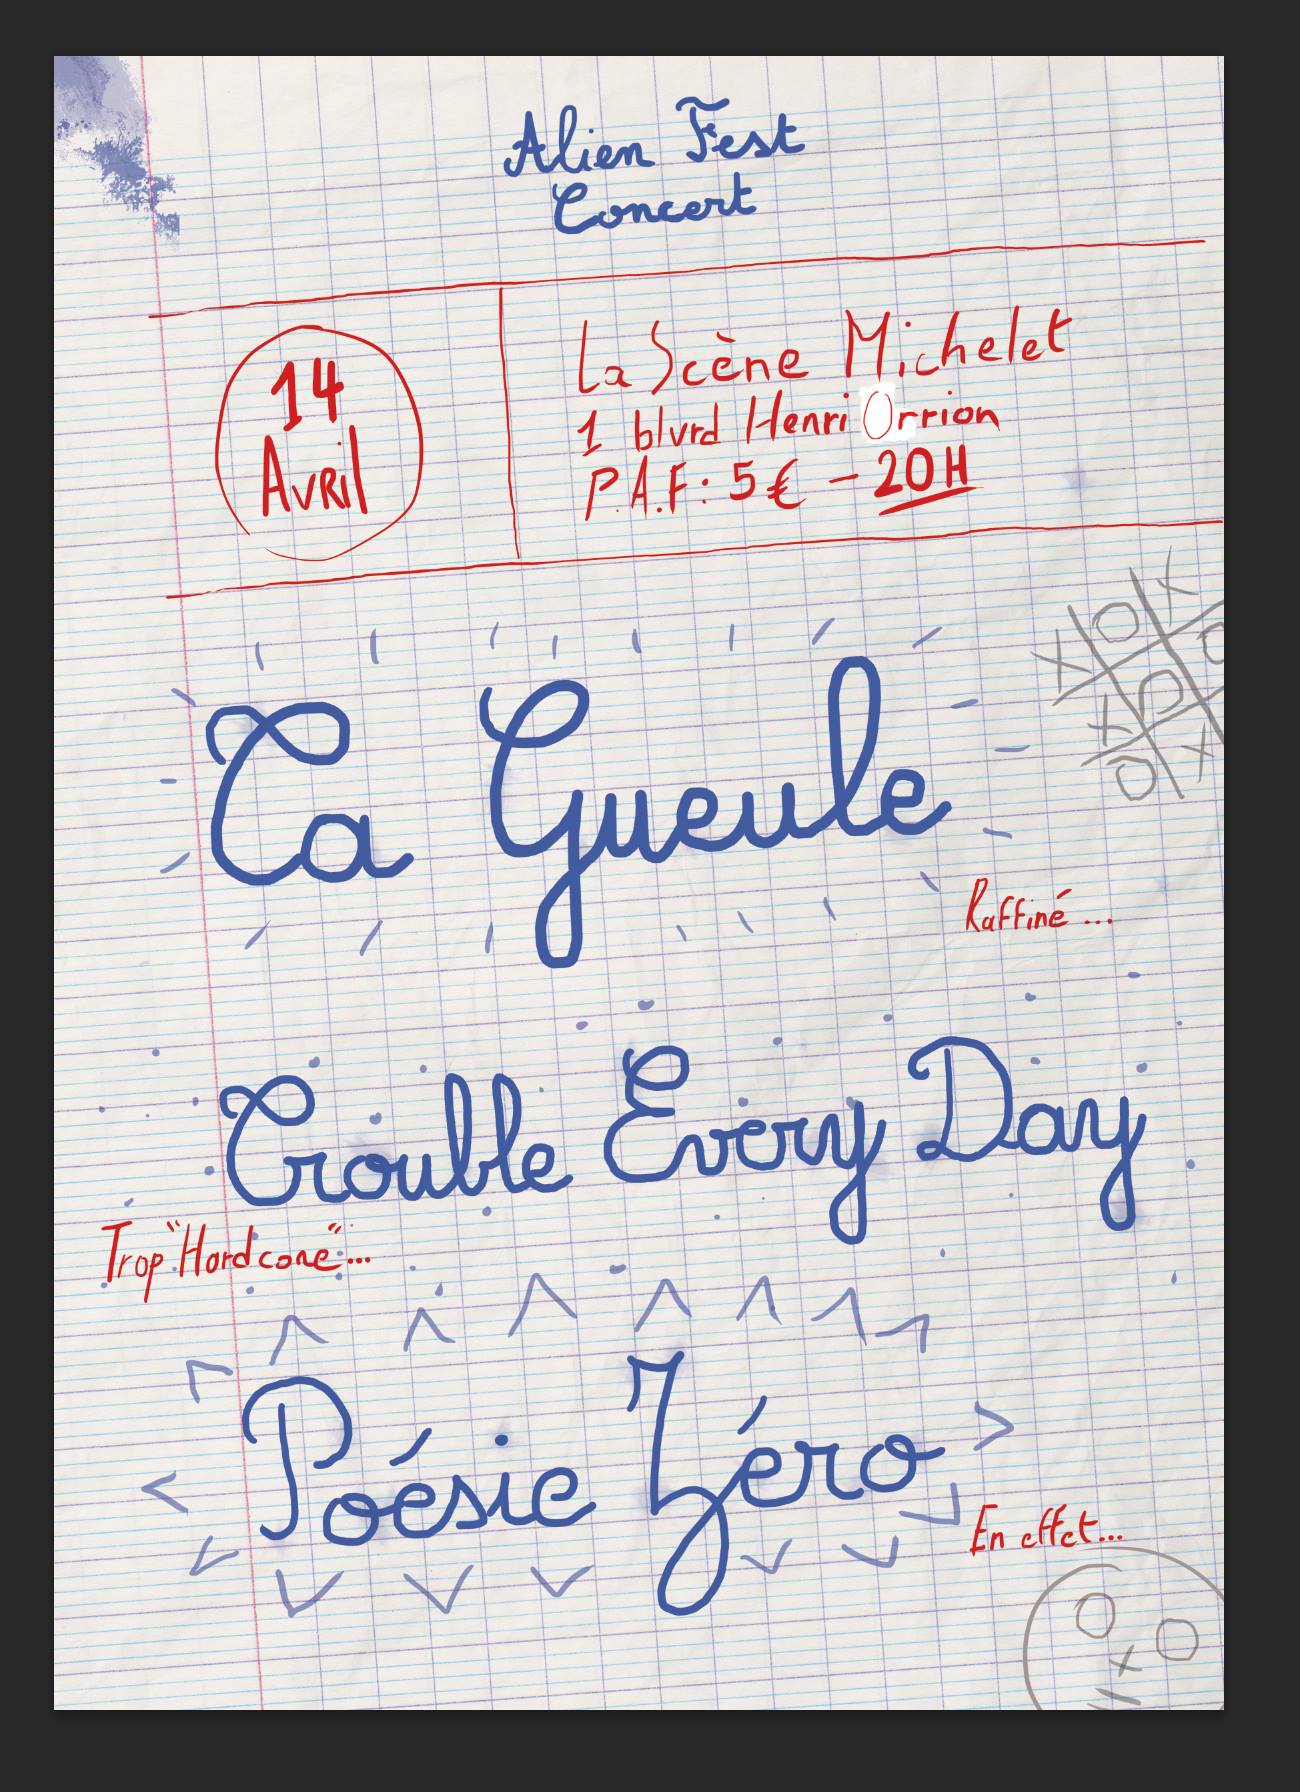 Alien Fest
Concert
14
Avril
La Scène Michelet
1 blvrd Henri Orrion
P.A.F: 5€ - 20H
Ta Gueule
Raffiné...
Trouble Every Day
Trop "Hardcore"...
Poésie Zéro
En effet...